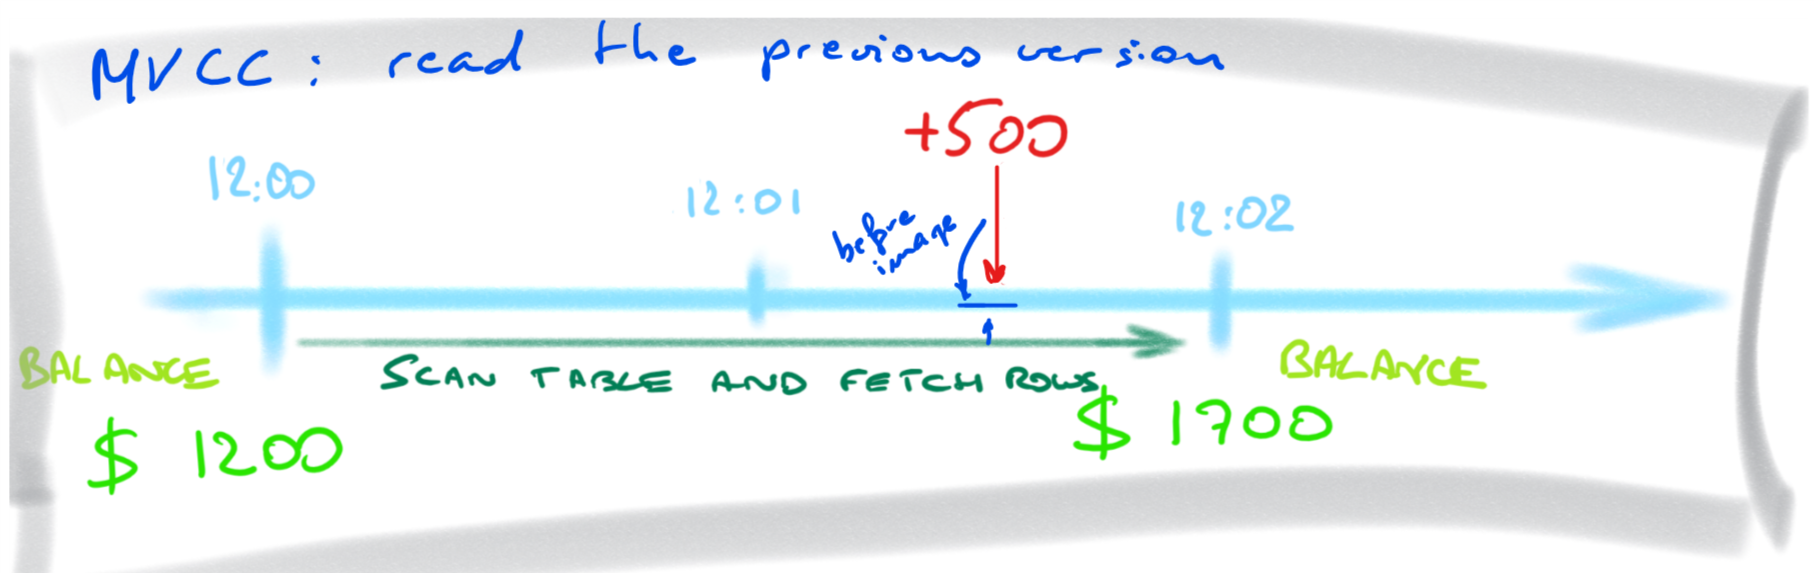 MVCC: read the previous version
+500
12:00
12:01
12:02
before
image
BALANCE
$ 1200
SCAN TABLE AND FETCH ROWS
BALANCE
$ 1700